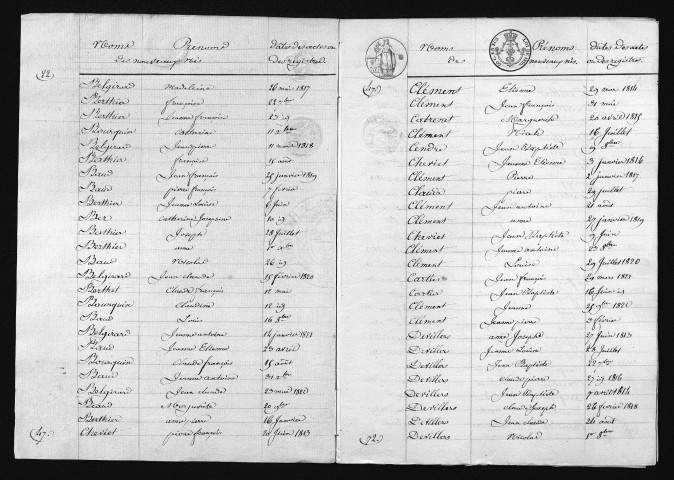 Noms Prenoms Dates des actes ou
des nouveaux nés des registres
22.
Belgirard Madeleine 26 mai 1817
Berthier françoise 22 9bre
Berthier Jeanne françoise 27 id
Bourquin Catherine 11 Xbre
Belgirard Jean pierre 11 mars 1818
Berthier françoise 15 août
Baud Jean françois 25 janvier 1819
Baud pierre françois 7 fevrier
Berthier Jeanne Louise 6 juin
Ber Catherine Josephine 10 id
Berthier Joseph 28 Juillet
Berthier anne
Baud Nicolas 26 id
Belgirard Jean claude 15 fevrier 1820
Berthet Claude françois 12 mai
Bourquin Claudine 12 id
Baud Louis 16 8bre
Belgirard Jeanne antoine 14 janvier 1821
Baud Jeanne Etienne 29 avril
Bourquin Claude françois 15 août
Baud Jeanne antoine 31 Xbre
Belgirard Jean claude 23 mai 1822
Baud Marguerite 20 9bre
Berthier anne pierre 16 Janvier
47. Cheviet pierre françois 24 Juin 1813
Noms Prénoms Dates des actes
de nouveaux nés. ou des registres
47.
Clément Etienne 29 mars 1814
Clément Jean françois 31 mai
Catrenet Marguerite 20 avril 1815
Clément Nicole 16 Juillet
Cendre Jean Baptiste 9 8bre
Cheviet Jeanne Etienne 3 janvier 1816
Clément Pierre 2 janvier 1817
Claude piere 29 juillet
Clément Jean antoine 21 août
Clément anne 27 janvier 1819
Cheviet Jean Baptiste 9 Juin
Clément Jeanne antoine 23 8bre
Clément Louise 29 Juillet 1820
Cartier Jean françois 29 mars 1821
Cartier Jean Baptiste 16 Juin
Clément Jeanne 25 9bre 1822
Clément Jeanne pierre 3 fevrier
Devillers anne Josephe 27 Juin 1813
Devillers Jeanne Louise 28 Juillet
Devillers Jean Baptiste 22 9bre
Devillers Claude pierre 27 id 1816
Devillers Jean Baptiste 7 avril 1816
Devillers Claude Joseph 26 fevrier 1818
Devillers Jean 24 août
72. Devillers Nicolas 1er 8bre